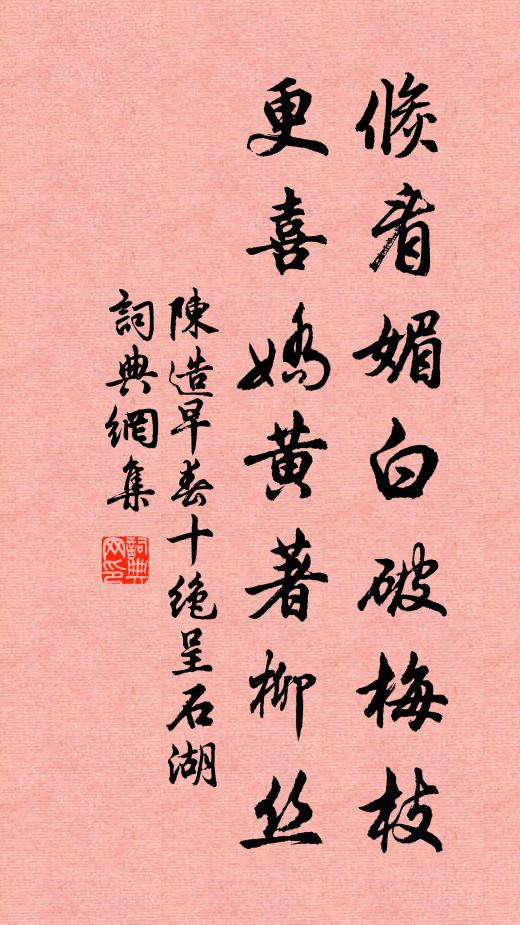 倐看媚白破梅枝
更喜嬌黄著柳丝
陳造早春十绝呈石湖
詞典網集
詞典
网印